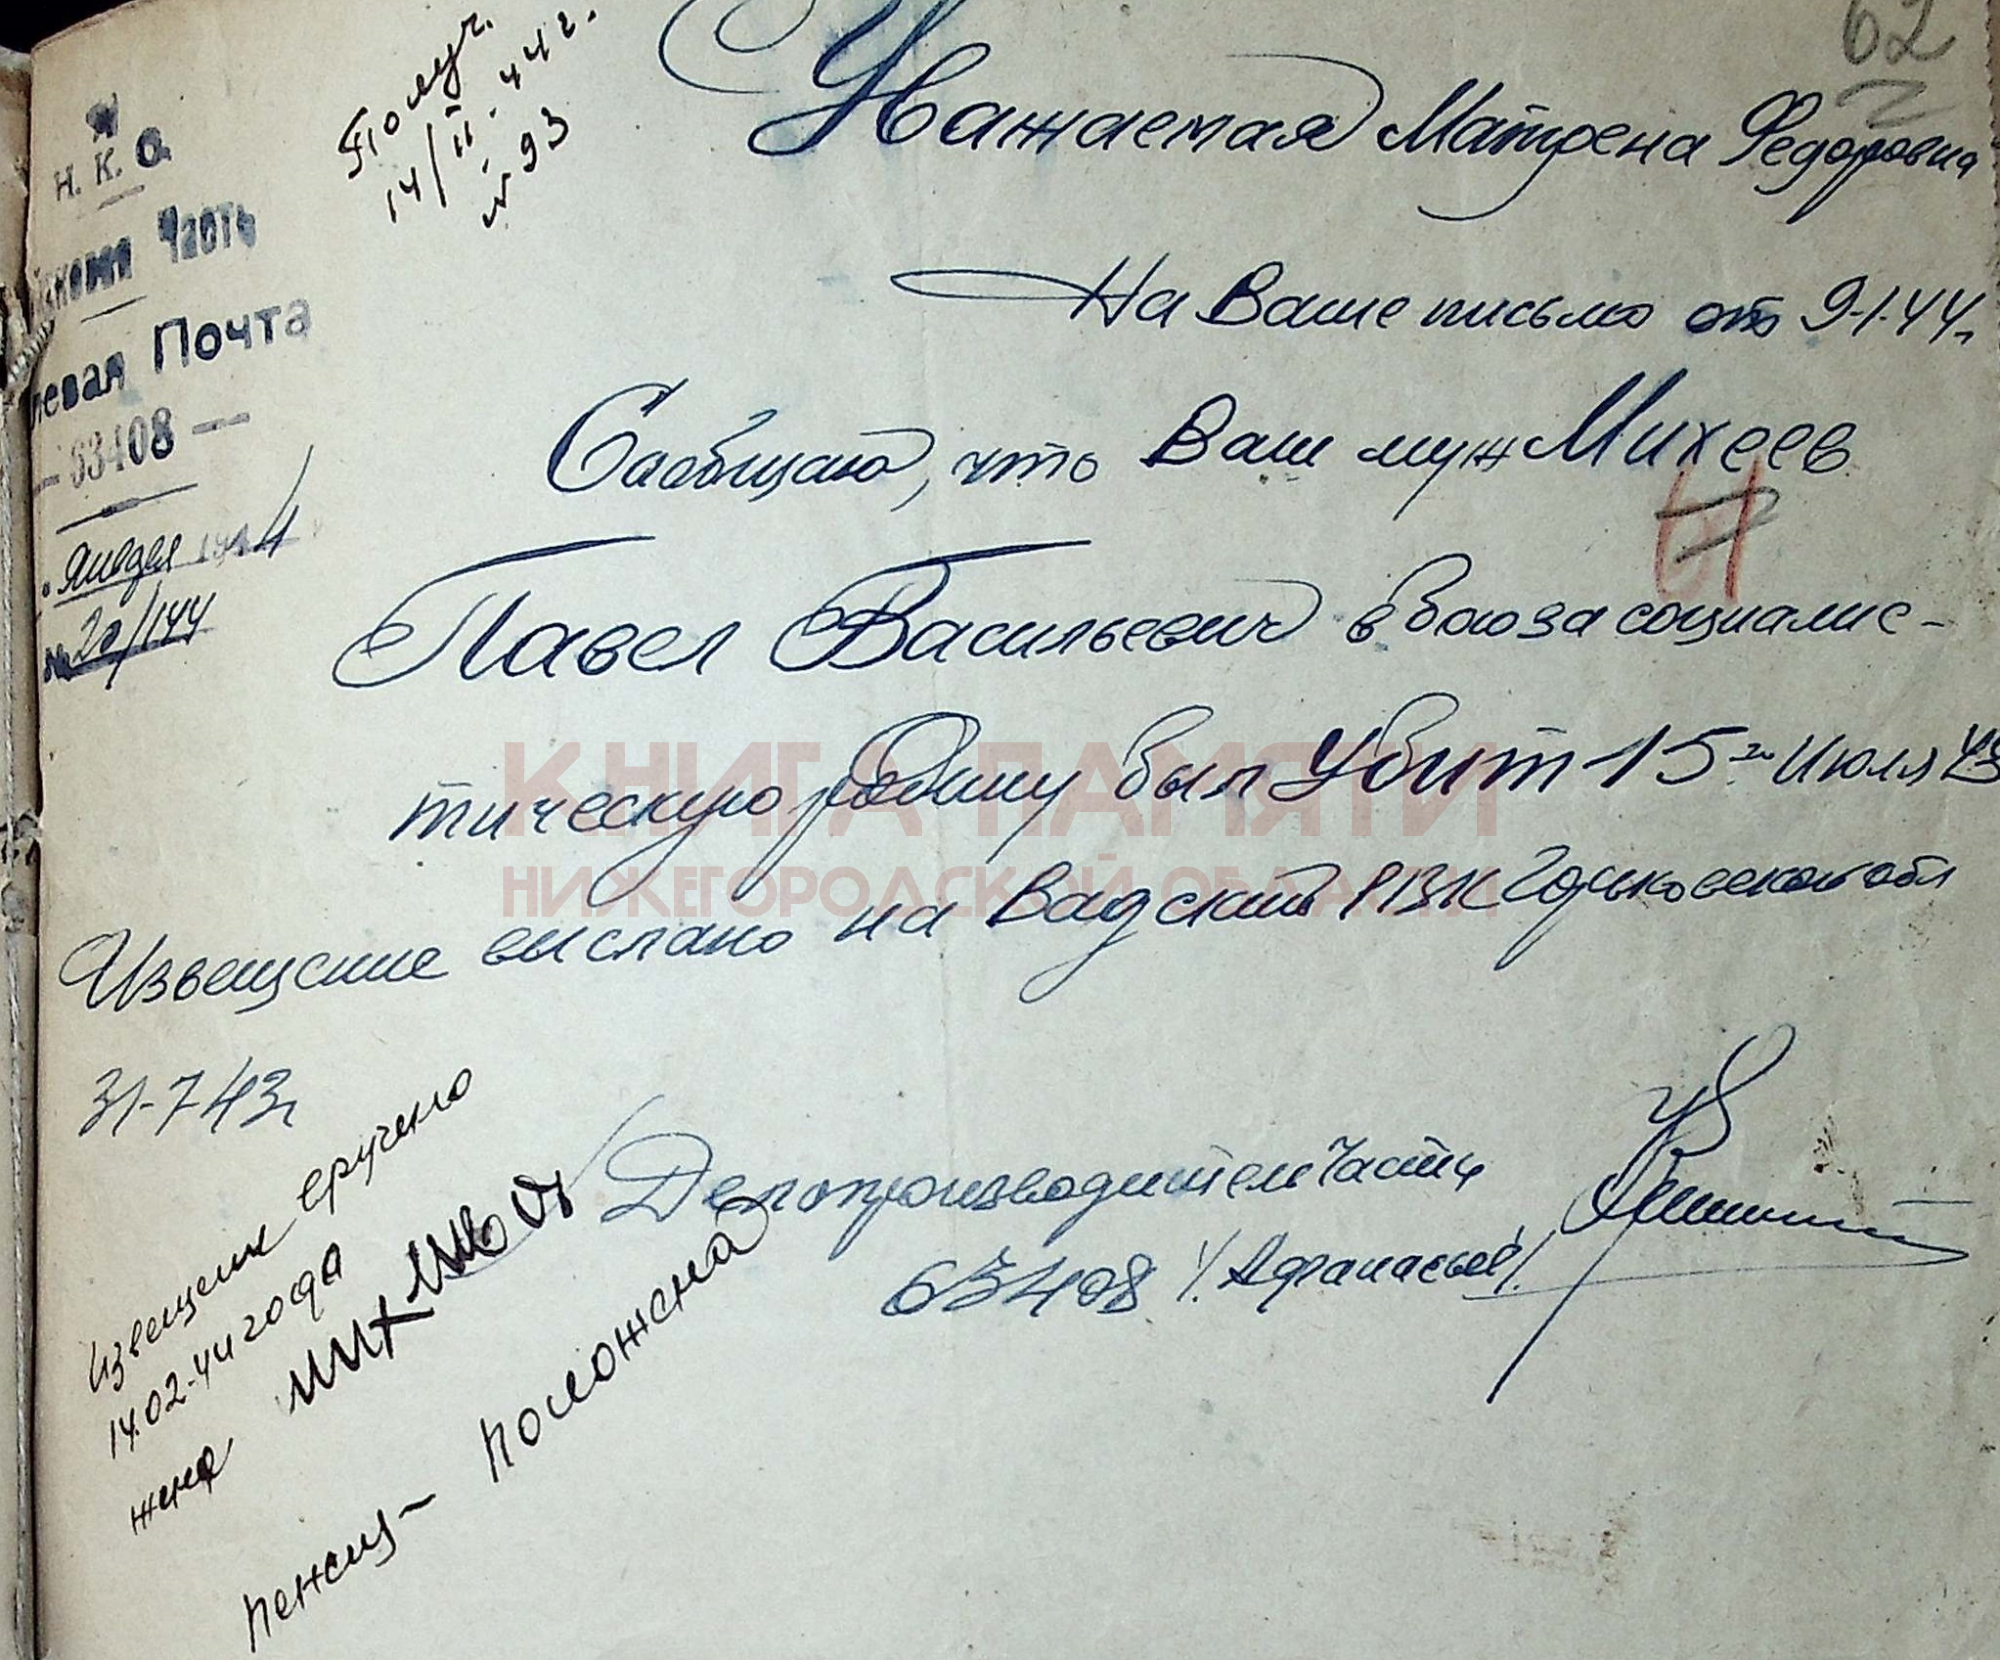 62
Получ.
14/II-44 г.
№ 93
Н. К. О.
Часть
Почта
— 63408 —
Января 1944
№ 20/144
Уважаемая Матрена Федоровна
На Ваше письмо от 9-1-44г.
Сообщаю, что Ваш муж Михеев
61
Павел Васильевич в бою за социалис-
тическую родину был убит 15го Июля 43
КНИГА ПАМЯТИ
НИЖЕГОРОДСКОЙ ОБЛАСТИ
Извещение выслано на Вадский РВК Горьковской обл
31-7 43г
Делопроизводитель части
63408 /Афанасьев/
Извещение вручено
14.02-44 года
жена
пенсия - положена